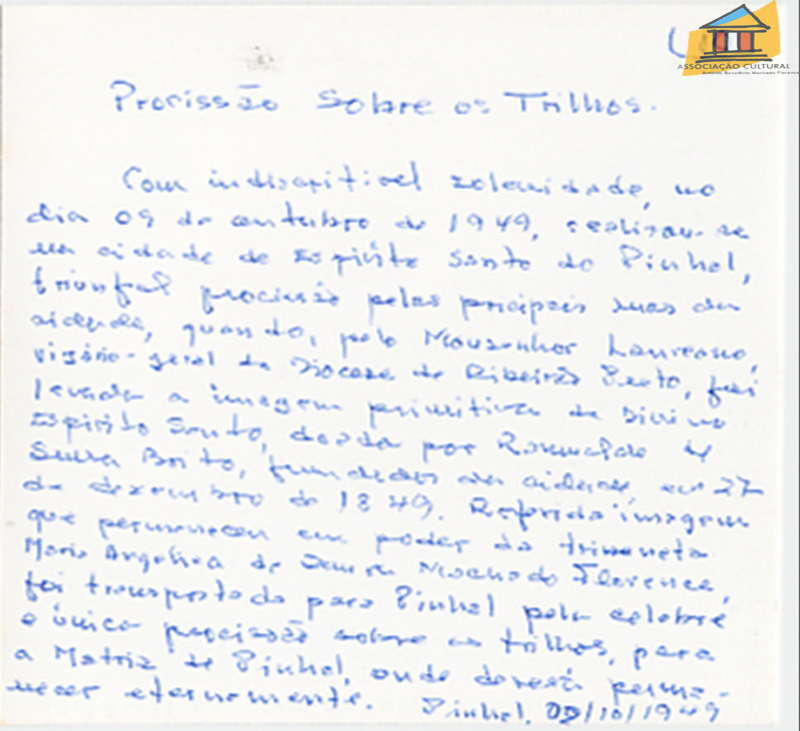 ASSOCIAÇÃO CULTURAL
Antonio Benedicto Machado Florence
Procissão Sobre os Trilhos.
Com indiscritivel solenidade, no
dia 09 de outubro de 1949, realizou-se
na cidade de Espirito Santo do Pinhal,
triunfal procissão pelas principais ruas da
cidade, quando, pelo Monsenhor Laureano,
vigário-geral da Diocese de Ribeirão Preto, foi
levada a imagem primitiva do Divino
Espirito Santo, doada por Romualdo de
Souza Brito, fundador da cidade, em 27
de dezembro de 1849. Referida imagem
que permaneceu em poder da trineneta
Maria Angelica de Souza Machado Florence,
foi transportada para Pinhal pela celebre
e única procissão sobre os trilhos, para
a Matriz de Pinhal, onde deverá perma-
necer eternamente. Pinhal, 09/10/1949